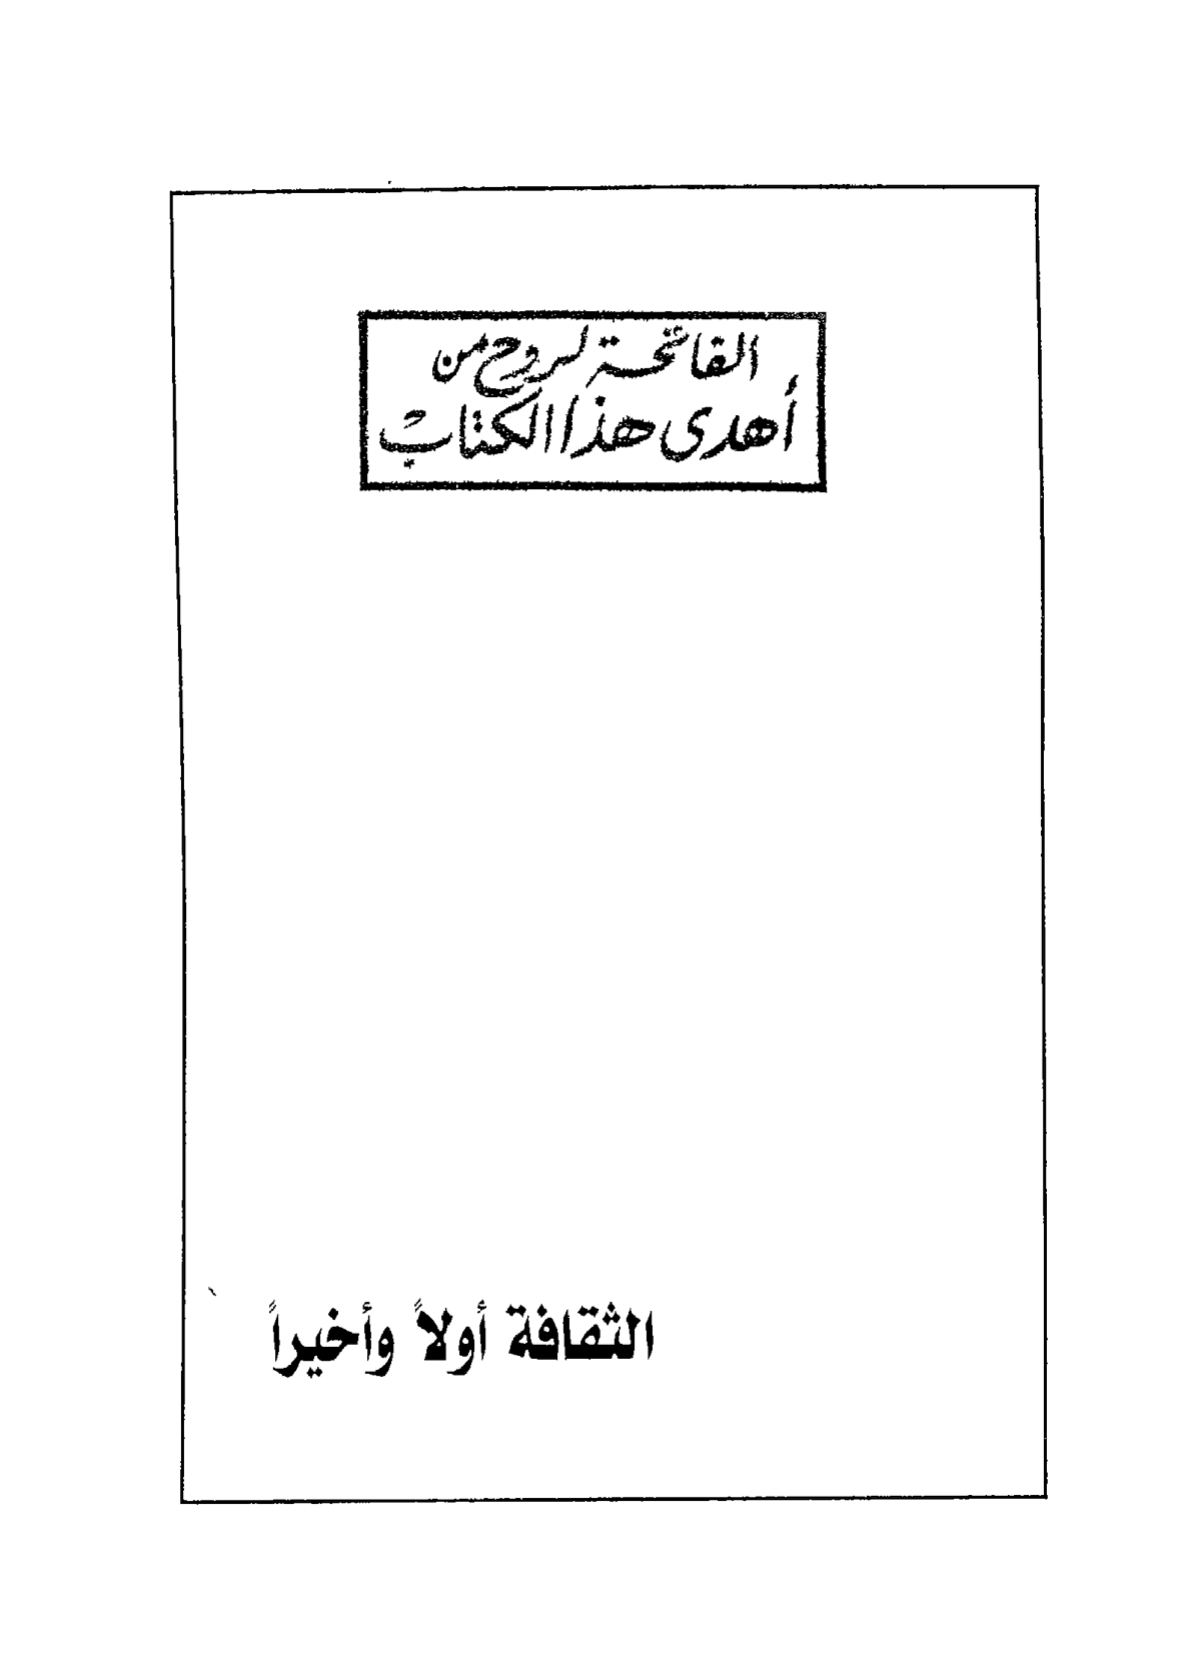 الفاتحة لروح من
أهدى هذا الكتاب
الثقافة أولاً وأخيراً